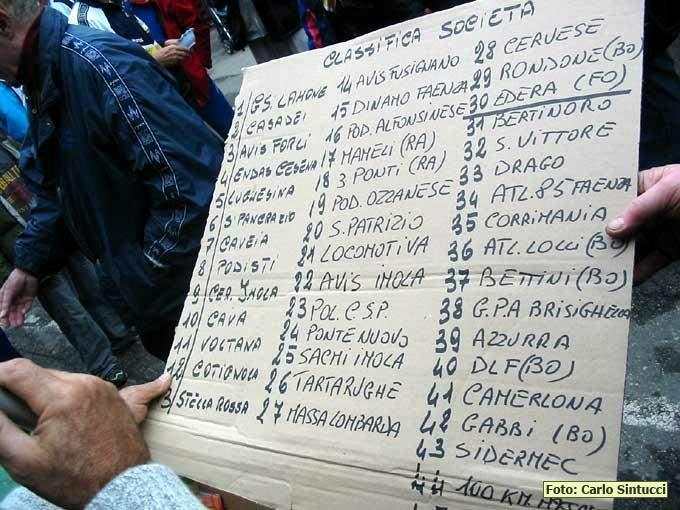 CLASSIFICA SOCIETÀ
1 GS. LAMONE
2 CASADEI
3 AVIS FORLÌ
4 ENDAS CESENA
5 LUGHESINA
6 S. PANCRAZIO
7 CAVEIA
8 PODISTI
9 CER. IMOLA
10 CAVA
11 VOLTANA
12 COTIGNOLA
3 STELLA ROSSA
14 AVIS FUSIGNANO
15 DINAMO FAENZA
16 POD. ALFONSINESE
17 MAMELI (RA)
18 3 PONTI (RA)
19 POD. OZZANESE
20 S. PATRIZIO
21 LOCOMOTIVA
22 AVIS IMOLA
23 POL. C.S.P.
24 PONTE NUOVO
25 SACMI IMOLA
26 TARTARUGHE
27 MASSA LOMBARDA
28 CERVESE
29 RONDONE (BO)
30 EDERA (FO)
31 BERTINORO
32 S. VITTORE
33 DRAGO
34 ATL. 85 FAENZA
35 CORRIMANIA
36 ATL. LOLLI (BO)
37 BETTINI (BO)
38 G.P.A BRISIGHELLA
39 AZZURRA
40 DLF (BO)
41 CAMERLONA
42 GABBI (BO)
43 SIDERMEC
44 100 KM
Foto: Carlo Sintucci